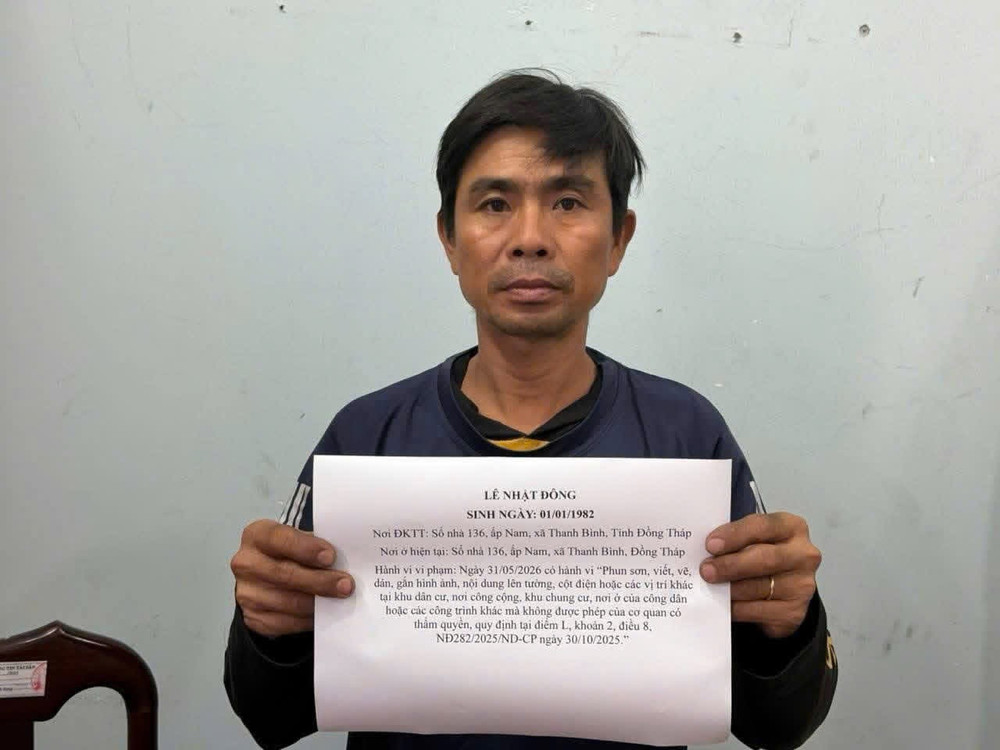 LÊ NHẬT ĐÔNG
SINH NGÀY: 01/01/1982
Nơi ĐKTT: Số nhà 136, ấp Nam, xã Thanh Bình, Tỉnh Đồng Tháp
Nơi ở hiện tại: Số nhà 136, ấp Nam, xã Thanh Bình, Đồng Tháp
Hành vi vi phạm: Ngày 31/05/2026 có hành vi “Phun sơn, viết, vẽ,
dán, gắn hình ảnh, nội dung lên tường, cột điện hoặc các vị trí khác
tại khu dân cư, nơi công cộng, khu chung cư, nơi ở của công dân
hoặc các công trình khác mà không được phép của cơ quan có
thẩm quyền, quy định tại điểm L, khoản 2, điều 8,
NĐ282/2025/NĐ-CP ngày 30/10/2025.”